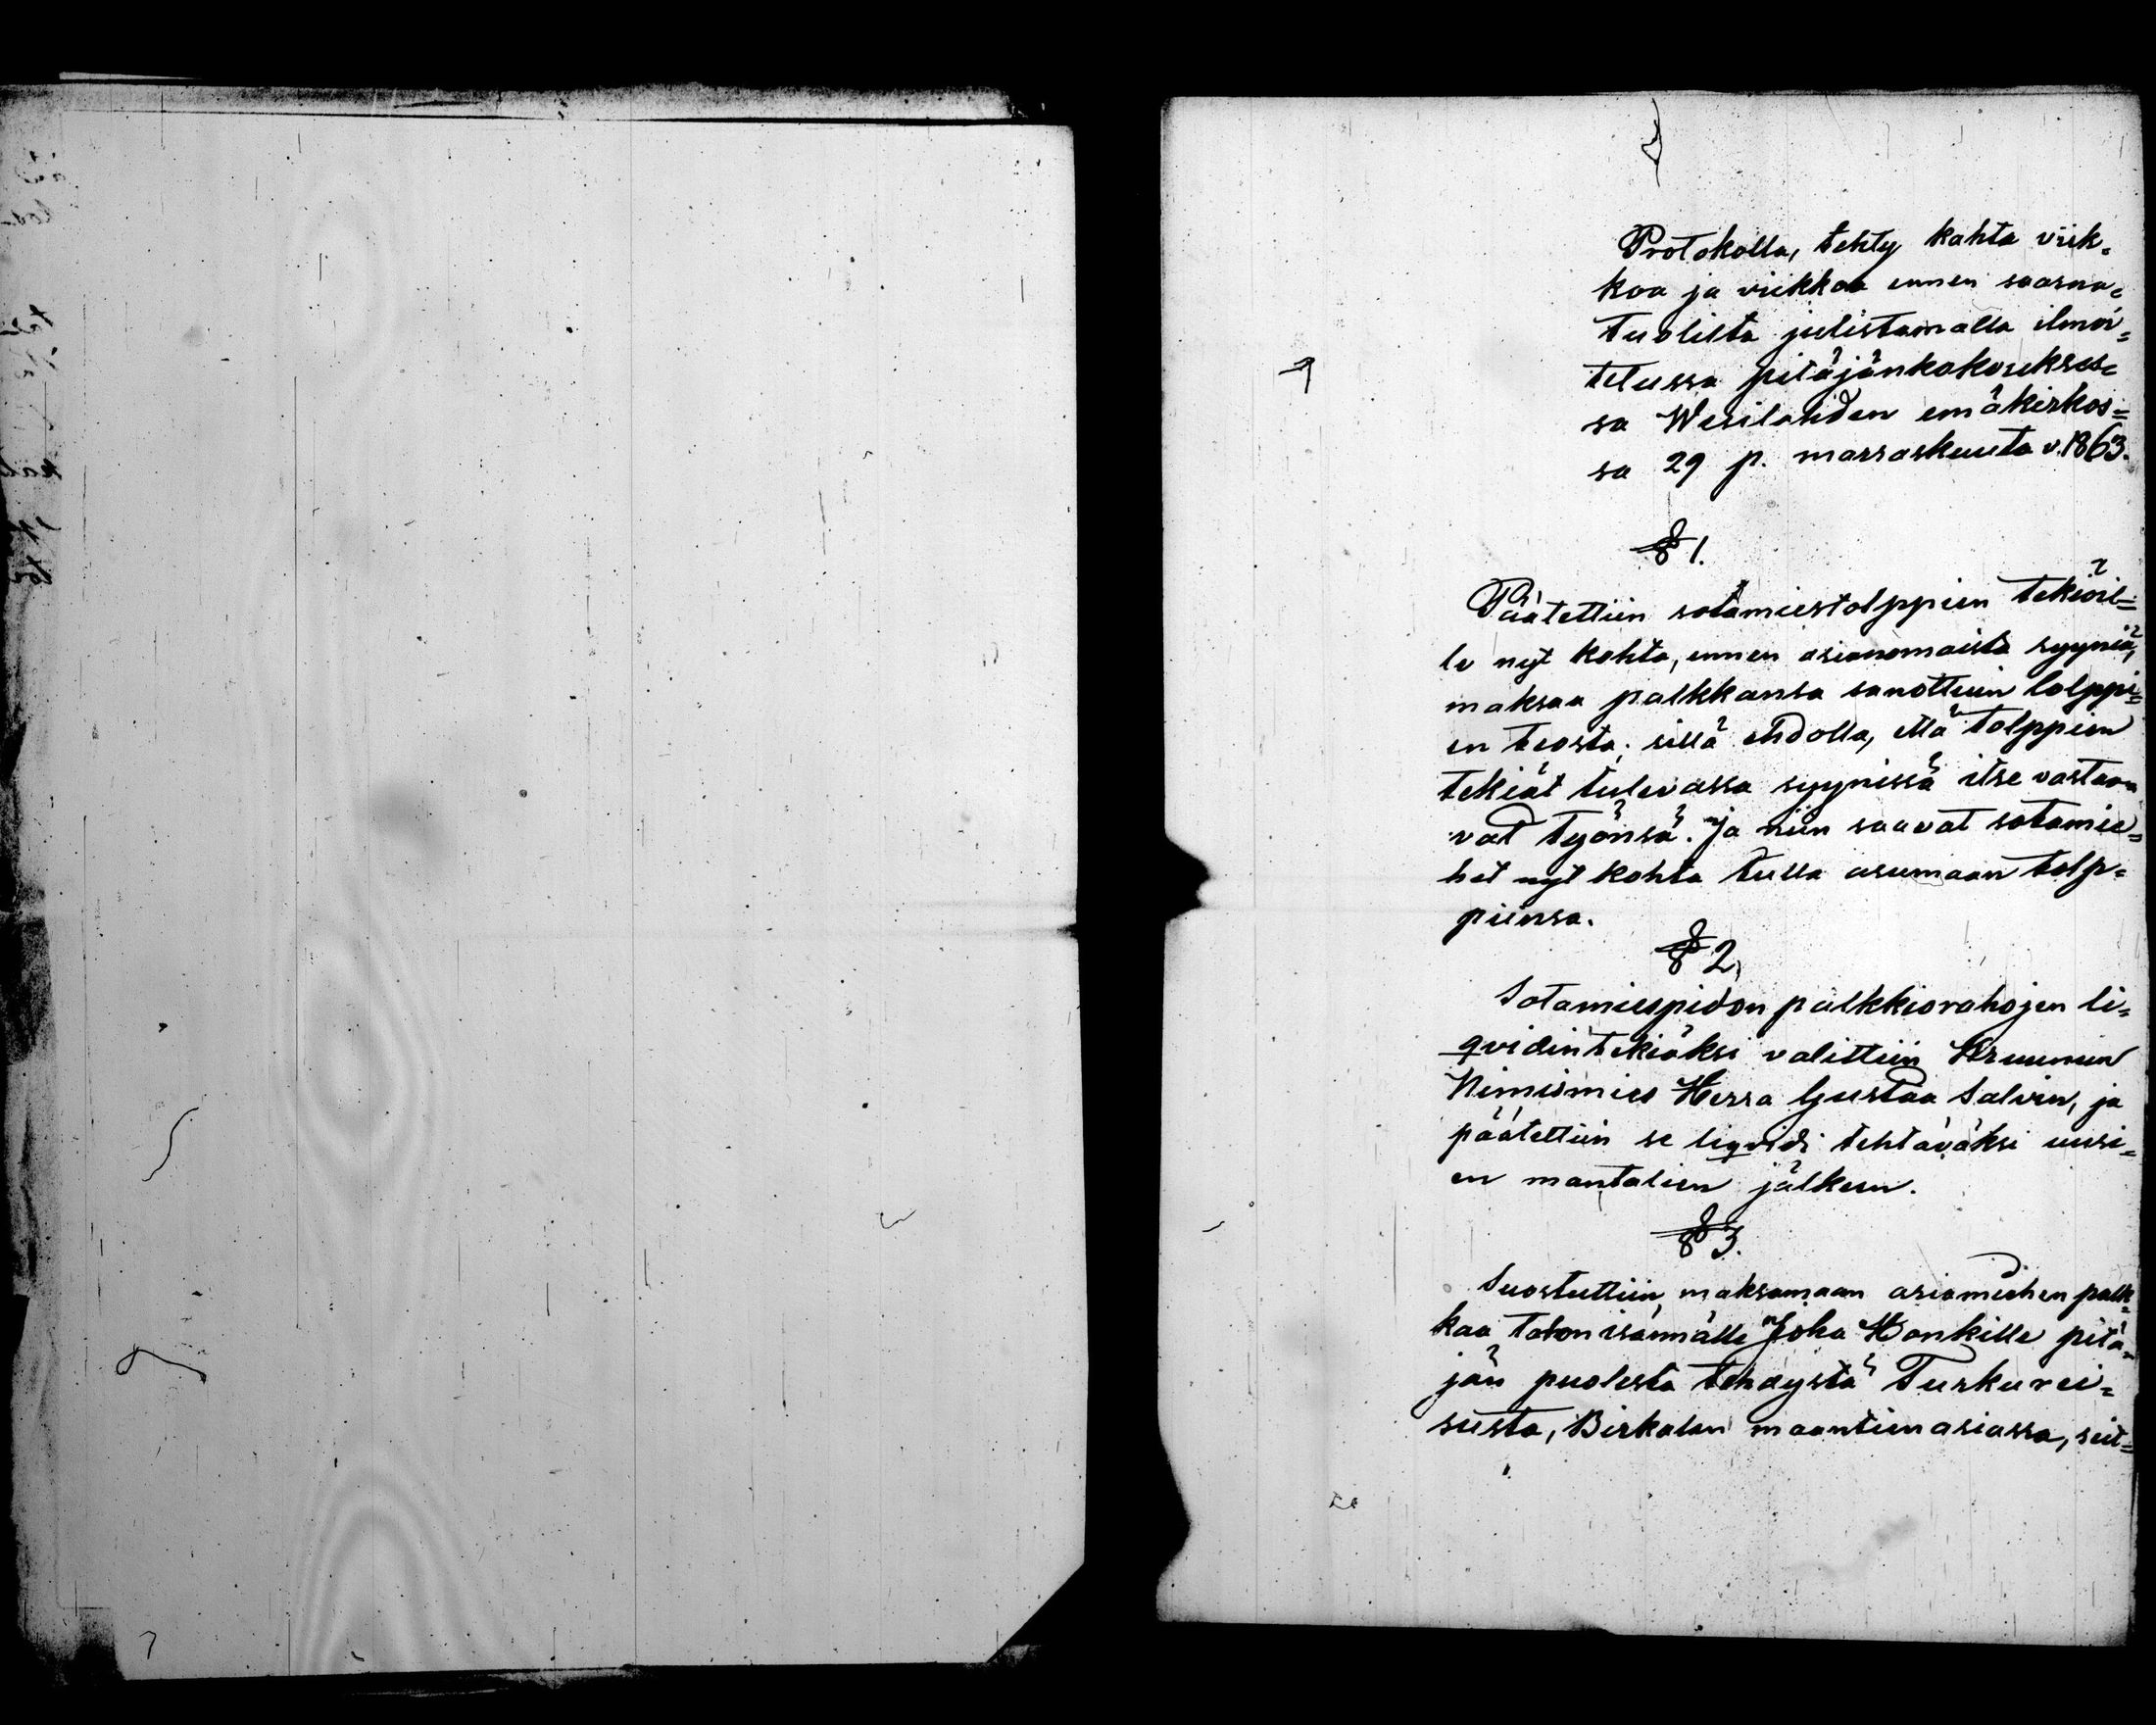 Protokolla, tehty kahta viik=
koa ja viikkoa ennen saarna=
tuolilta julistamalla ilmoi=
tetussa pitäjänkokoukses=
sa Wesilahden emäkirkos=
sa 29 p. marraskuuta v. 1863.
§ 1.
Päätettiin sotamiestolppien tekiöil=
le nyt kohta, ennen asianomaista syyniä,
maksaa palkkansa sanottuin tolppi=
en teosta; sillä ehdolla, että tolppien
tekiät tulevassa syynissä itse vastaa
vat työnsä. Ja niin saavat sotamie=
het nyt kohta tulla asumaan tolp=
piinsa.
§ 2,
Sotamiespidon palkkiorahojen li=
qvidintekiäksi valittiin Kruunun
Nimismies Herra Gustaa Salvin, ja
päätettiin se liqvidi tehtäväksi uusi=
en mantalien jälkeen.
§ 3.
Suostuttiin maksamaan asiamiehen palk=
kaa talon isännälle Joha Honkille pitä=
jän puolesta tehdystä Turkurei=
susta, Birkalan maantienasiassa, seit=